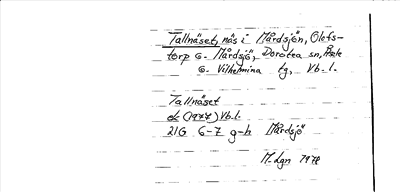 Tallnäset, näs i Mårdsjön, Olofs-
torp o. Mårdsjö, Dorotea sn, Åsele
o. Vilhelmina tg, Vb. l.
Tallnäset
ek (1977) Vb. l.
21G 6-7 g-h Mårdsjö
M. Lgn 1978